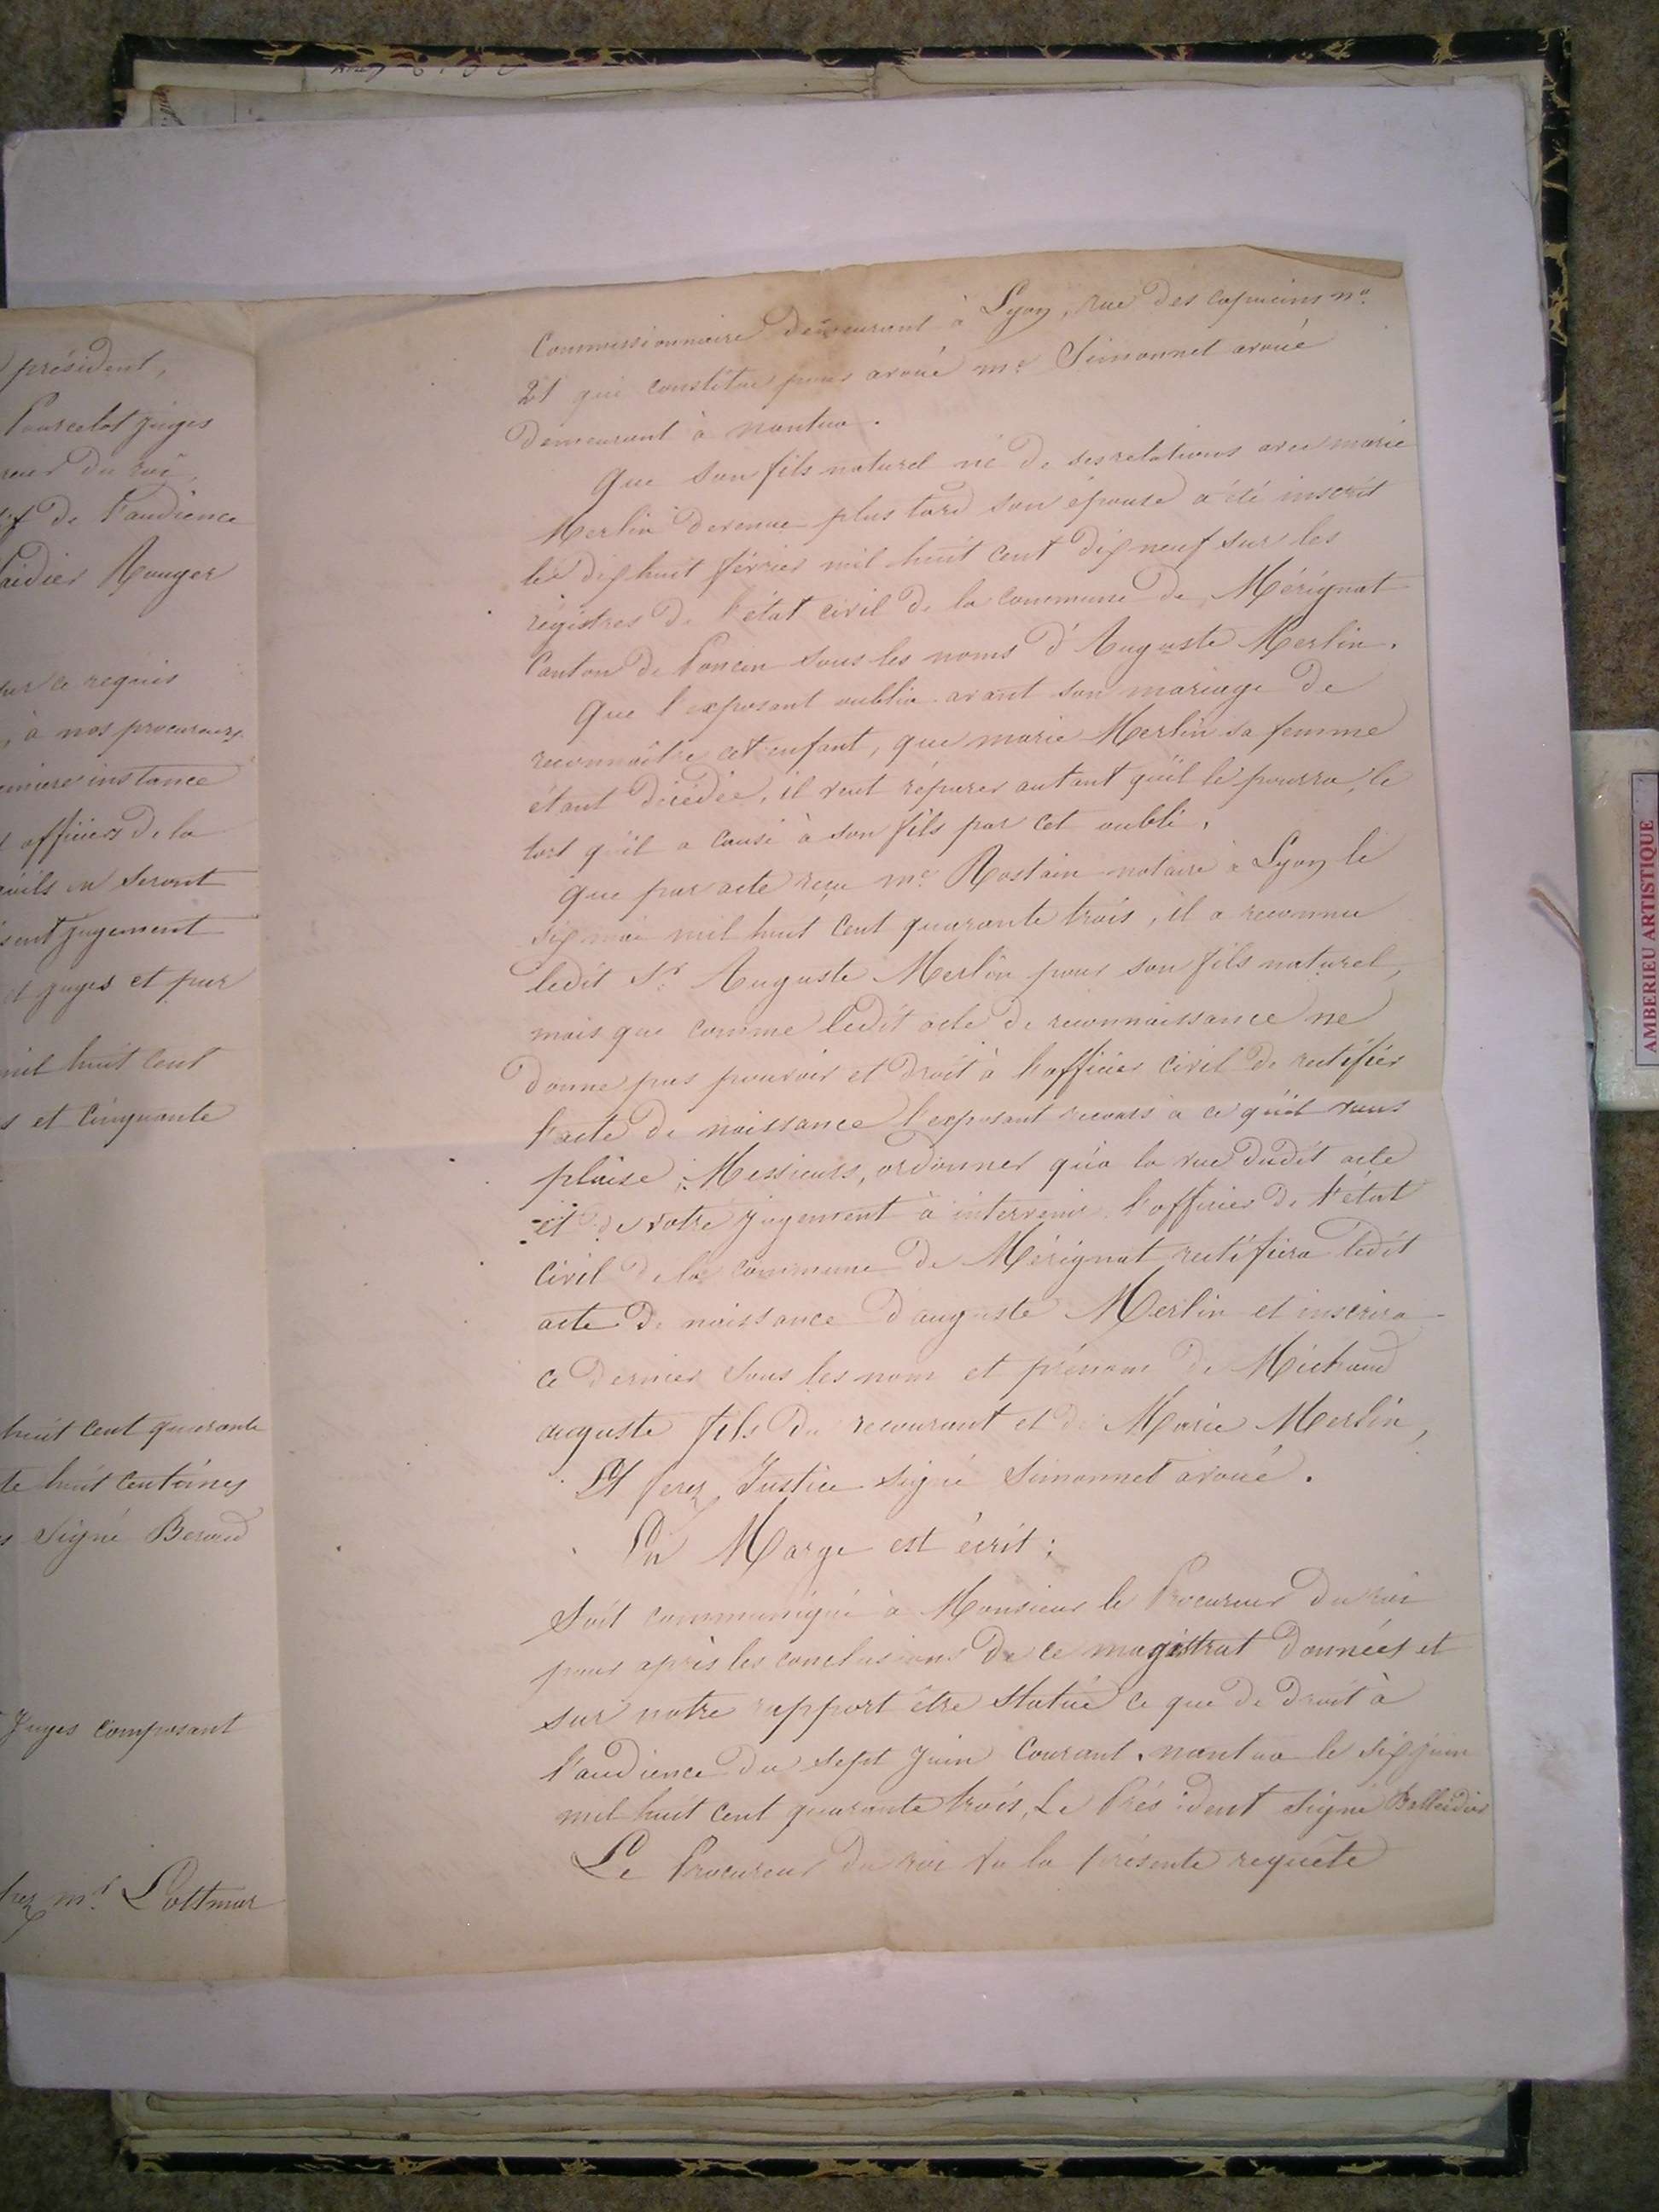 président,
Pourcelot juges
du roi
de l'audience
Rouger
sur ce requis
à nos procureurs
instance
officiers de la
en seront
jugement
juges et par
mil huit cent
et cinquante
huit cent quarante
huit centimes
Signé Beroud
Juges composant
mr. Lottmar
Commissionnaire demeurant à Lyon, rue des capucins no.
21 qui constitue pour avoué me. Simonnet avoué
demeurant à nantua.
Que son fils naturel né de ses relations avec marie
Merlin devenue plus tard son épouse a été inscrit
le dix huit février mil huit cent dix neuf sur les
régistres de l'état civil de la commune de Mérignat
Canton de Poncin sous les noms d'Auguste Merlin.
Que l'exposant oublia avant son mariage de
reconnaître cet enfant, que marie Merlin sa femme
étant décédée, il veut réparer autant qu'il le pourra, le
tort qu'il a causé à son fils par cet oubli,
que par acte reçu me. Rostain notaire à Lyon le
six mai mil huit cent quarante trois, il a reconnu
ledit Sr. Auguste Merlin pour son fils naturel,
mais que comme ledit acte de reconnaissance ne
donne pas pouvoir et droit à l'officier civil de rectifier
l'acte de naissance l'exposant recourt à ce qu'il vous
plaise, Messieurs, ordonner qu'à la vue dudit acte
et de votre jugement à intervenir l'officier de l'état
civil de la commune de Mérignat rectifiera ledit
acte de naissance d'auguste Merlin et inscrira
ce dernier sous les nom et prénom de Michaud
auguste fils du recourant et de Marie Merlin,
Et ferez Justice signé Simonnet avoué.
En Marge est écrit:
Soit communiqué à Monsieur le Procureur du roi
pour après les conclusions de ce magistrat données et
sur notre rapport être statué ce que de droit à
l'audience du sept juin courant. nantua le six juin
mil huit cent quarante trois, Le Président signé
Le Procureur du roi Vu la présente requête
AMBERIEU ARTISTIQUE